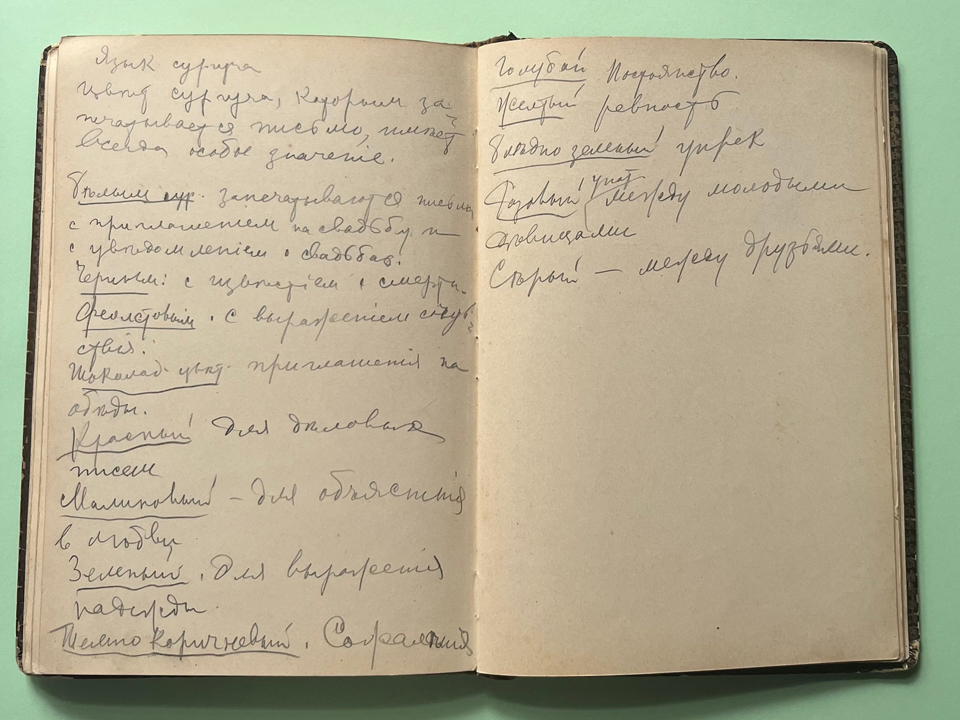 Языкъ сургуча
Цвѣтъ сургуча, которымъ за-
печатывается письмо, имѣетъ
всегда особое значеніе.
Бѣлымъ сург. запечатываются письма
с приглашеніемъ на свадьбу и
с увѣдомленіем о свадьбах.
Чернымъ: с извѣстіем о смерти.
Фіолетовым. с выраженіем сочув-
ствія.
Шоколад. цвѣт. приглашенія на
обѣды.
Красный для дѣловых
писем
Малиновый – для объясненія
в любви
Зеленый. Для выраженія
надежды.
Темно коричневый. Сожаленія
Голубой Постоянство.
Желтый ревность
Блѣдно зеленый упрек
Розовый упот. между молодыми
дѣвицами
Сѣрый – между друзьями.